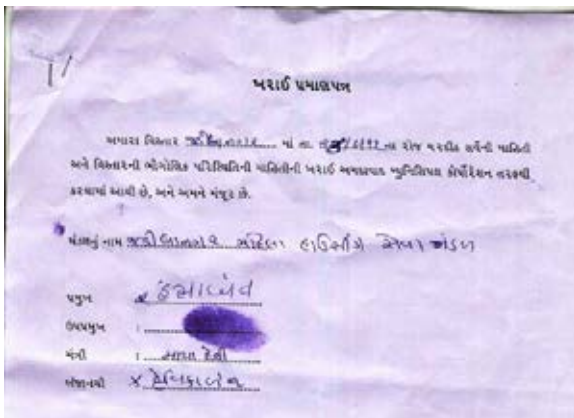 ખરાઈ પ્રમાણપત્ર
અમારા વિસ્તાર માં તા. ના રોજ ઘરદીઠ સર્વેની માહિતી
અને વિસ્તારની ભૌગોલિક પરિસ્થિતિની માહિતીની ખરાઈ અમદાવાદ મ્યુનિસિપલ કોર્પોરેશન તરફથી
કરવામાં આવી છે, અને અમને મંજૂર છે.
મંડળનું નામ મહિલા હાઉસીંગ સેવા મંડળ
પ્રમુખ : હંસાબેન
ઉપપ્રમુખ :
મંત્રી : દેવી
ખજાનચી